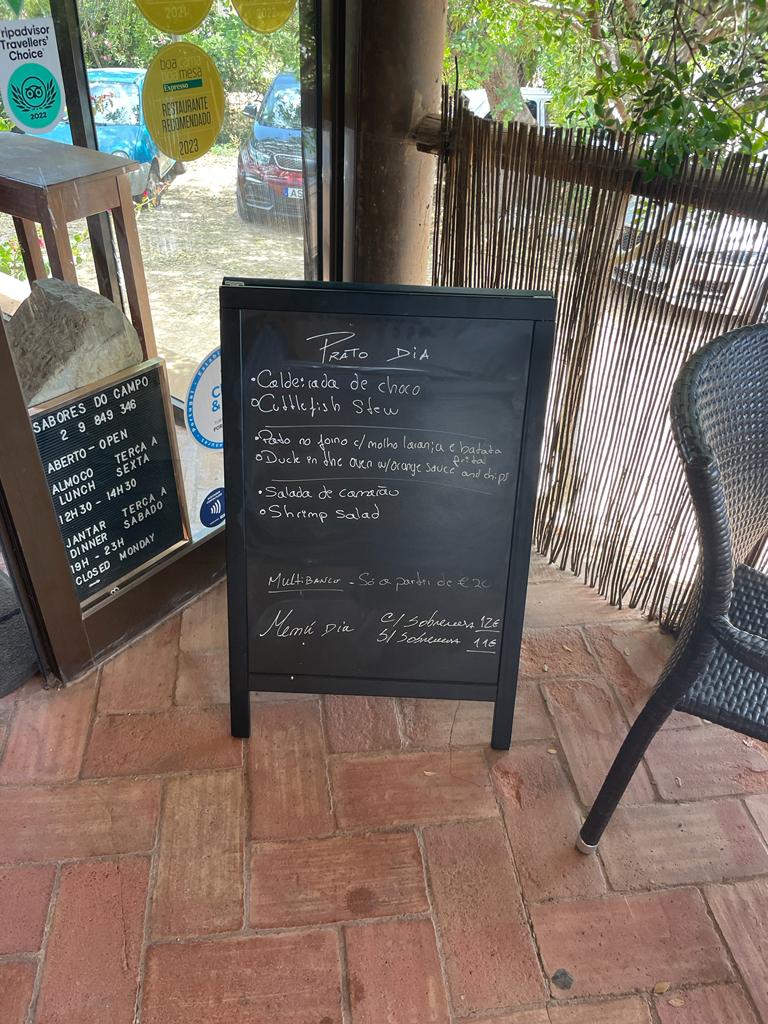 Tripadvisor
Travellers'
Choice
2022
2021
2022
boa
mesa
Expresso
RESTAURANTE
RECOMENDADO
2023
AS
SABORES DO CAMPO
2 9 849 346
ABERTO - OPEN
ALMOCO TERCA A
LUNCH SEXTA
12H30 - 14H30
JANTAR TERCA A
DINNER SABADO
19H - 23H
CLOSED MONDAY
PRATO DIA
•Caldeirada de choco
•Cuttlefish Stew
•Pato no forno c/molho laranja e batata frita
•Duck in the oven w/orange sauce and chips
•Salada de camarão
•Shrimp Salad
MULTIBANCO - Só a partir de €20
Menú Dia C/ Sobremesa 12€
S/ Sobremesa 11€